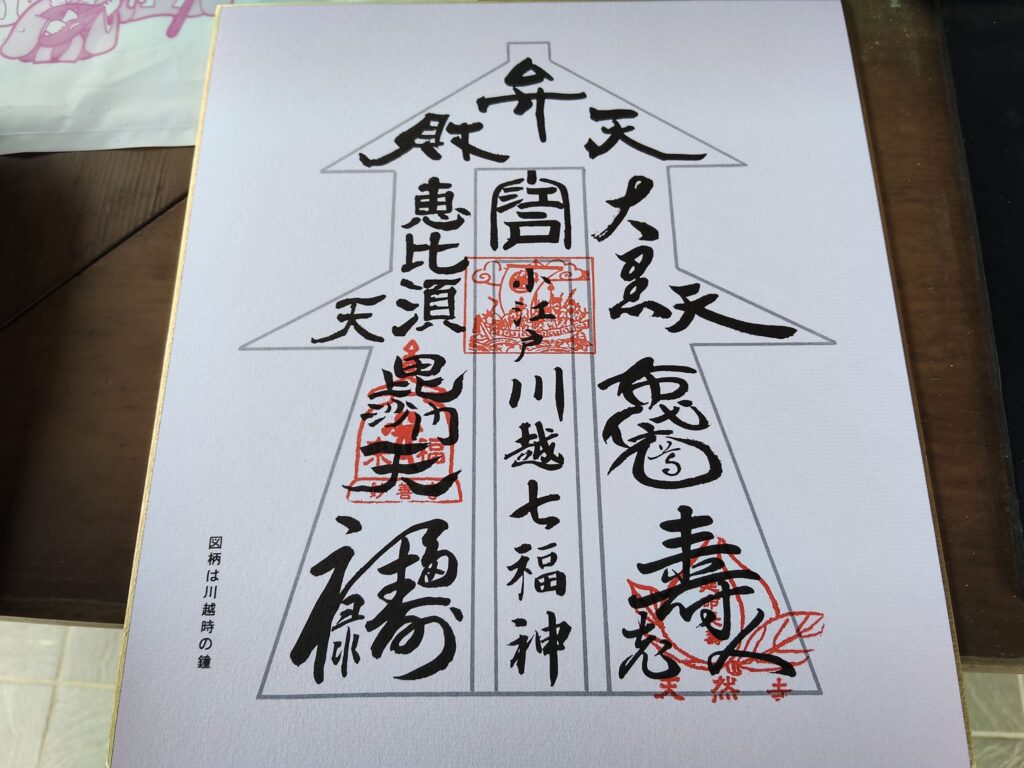 弁財天
大黒天
恵比須天
布袋尊
毘沙門天
寿老人
福禄寿
小江戸川越七福神
妙善
天然寺
図柄は川越時の鐘